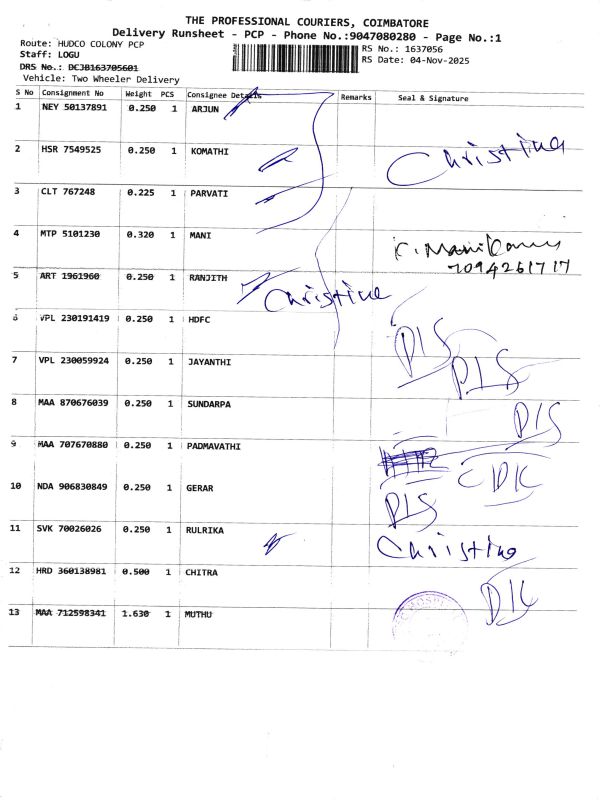 THE PROFESSIONAL COURIERS, COIMBATORE
Delivery Runsheet - PCP - Phone No.:9047080280 - Page No.:1
Route: HUDCO COLONY PCP
Staff: LOGU
DRS No.: DCJB163705601
Vehicle: Two Wheeler Delivery
RS No.: 1637056
RS Date: 04-Nov-2025
S No Consignment No Weight PCS Consignee Details Remarks Seal & Signature
1 NEY 50137891 0.250 1 ARJUN
2 HSR 7549525 0.250 1 KOMATHI Christina
3 CLT 767248 0.225 1 PARVATI
4 MTP 5101230 0.320 1 MANI
7094261717
5 ART 1961960 0.250 1 RANJITH Christina
6 VPL 230191419 0.250 1 HDFC
7 VPL 230059924 0.250 1 JAYANTHI
8 MAA 870676039 0.250 1 SUNDARPA
9 MAA 707670880 0.250 1 PADMAVATHI
10 NDA 906830849 0.250 1 GERAR
11 SVK 70026026 0.250 1 RULRIKA Christina
12 HRD 360138981 0.500 1 CHITRA
13 MAA 712598341 1.630 1 MUTHU